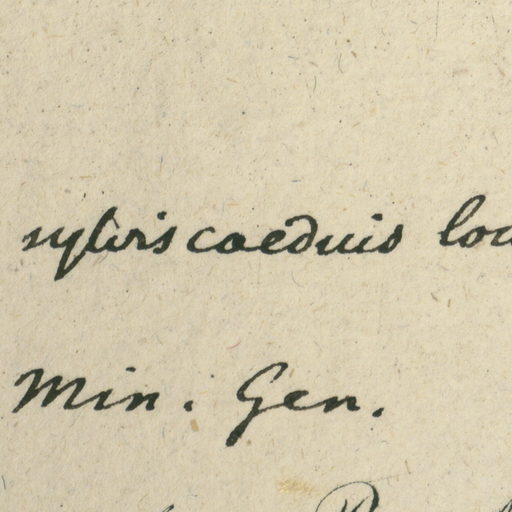 sylvis caeduis
Min. Gen.